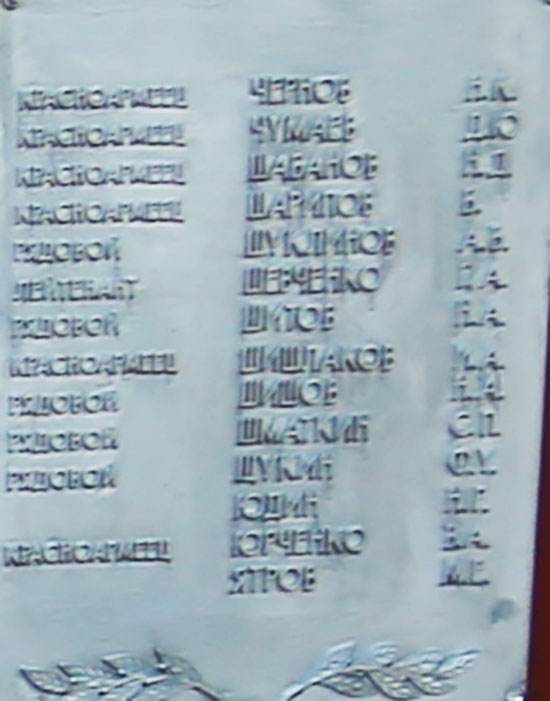 КРАСНОАРМЕЕЦ ЧЕРНОВ
КРАСНОАРМЕЕЦ ЧУМАЕВ Д.Ю
КРАСНОАРМЕЕЦ ШАБАНОВ Н.Д
КРАСНОАРМЕЕЦ ШАРИПОВ
РЯДОВОЙ А.Б.
ЛЕЙТЕНАНТ ШЕВЧЕНКО
РЯДОВОЙ ШИТОВ
КРАСНОАРМЕЕЦ ШИШЛАКОВ
РЯДОВОЙ ШИШОВ
РЯДОВОЙ ШМАТКИН С.П.
РЯДОВОЙ ЩУКИН
ЮДИН
КРАСНОАРМЕЕЦ ЮРЧЕНКО В.А.
ЯТРОВ М.Е.